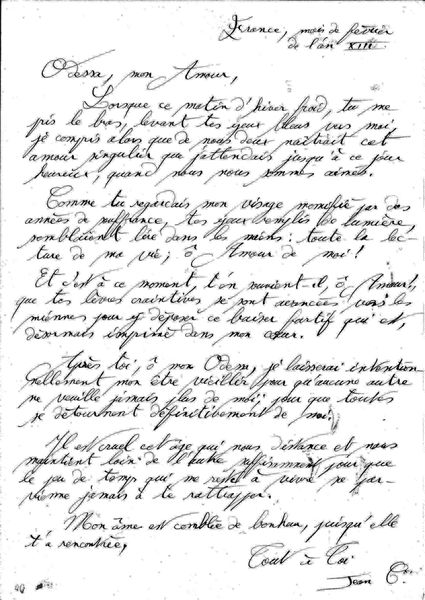 France, mois de février
de l'an XIII
Odessa, mon Amour,
Lorsque ce matin d'hiver froid, tu me
pris le bras, levant tes yeux bleus vers moi,
je compris alors que de nous deux naîtrait cet
amour singulier que j'attendais jusqu'à ce jour
heureux, quand nous nous sommes aimés.
Comme tu regardais mon visage momifié par des
années de souffrance, tes yeux emplis de lumière,
semblaient lire dans les miens: toute la lec-
ture de ma vie; ô Amour de moi!
Et c'est à ce moment, t'en souvient-il, ô Amour!,
que tes lèvres craintives se sont avancées vers les
miennes pour y déposer ce baiser furtif qui est,
désormais imprimé dans mon cœur.
Après toi, ô mon Odessa, je laisserai intention-
nellement mon être vieillir pour qu'aucune autre
ne veuille jamais plus de moi; pour que toutes
se détournent définitivement de moi.
Il est cruel cet âge qui nous distance et nous
maintient loin de l'autre suffisamment pour que
le peu de temps qui me reste à vivre ne par-
vienne jamais à te rattraper.
Mon âme est comblée de bonheur, puisqu'elle
t'a rencontrée,
Tout à Toi
Jean C.